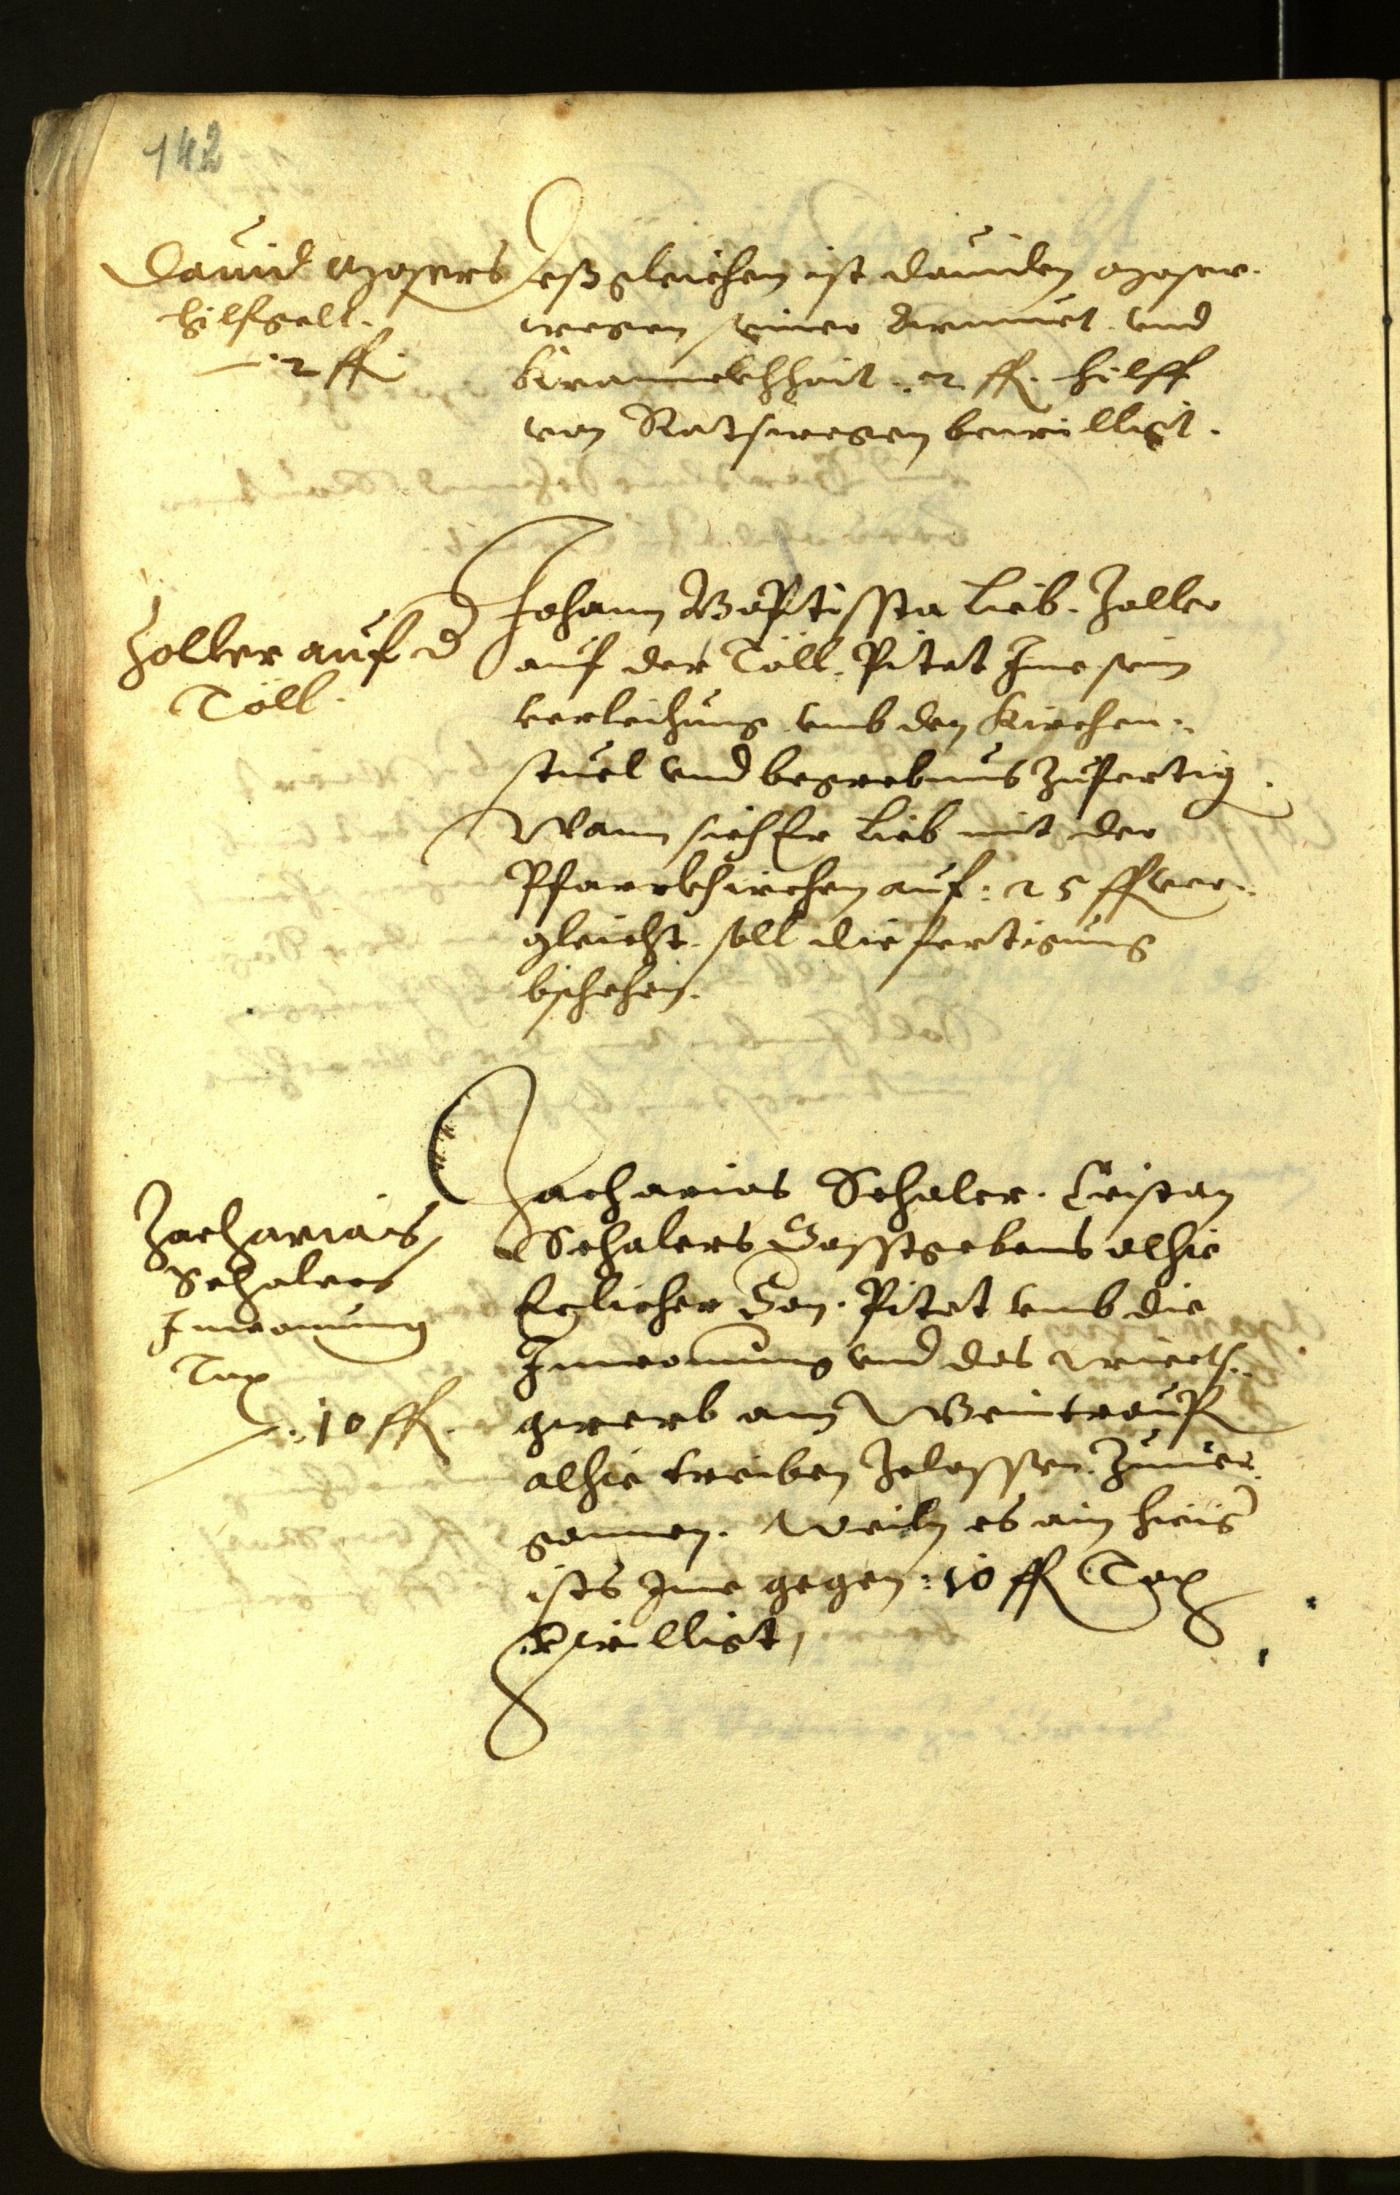 142
Dauid Mosers
hilfgelt.
2 ff
Deßgleichen ist Dauiden Moser.
wegen seiner Armuet vnd
Krannckhhait .2 ff. hilff
von Ratswegen bewilligt.
Zoller auf d
Töll.
Johann Baptissta Lieb. Zoller
auf der Töll. Pitet Ime sein
verleichung vmb den Kirchen..
stuel vnd begrebnus zufertig.
Wann sich Er Lieb mit der
Pfarrkhirchen auf: 25 ff ver..
gleicht. soll die fertigung
bschehen.
Zacharias
Schalers
Inwonung
Tax
.. 10 ff.
Zacharias Schaler. Cristan
Schalers Gasstgebens alhie
Eelicher Son. Pitet vmb die
Inwonung vnd das Wierts..
gwerb am Weintraufl
alhie treiben zelassen. Zuuer
gonnen. Weiln es ain hieig
ists Ime gegen: 10 ff Tax
bewilligt,